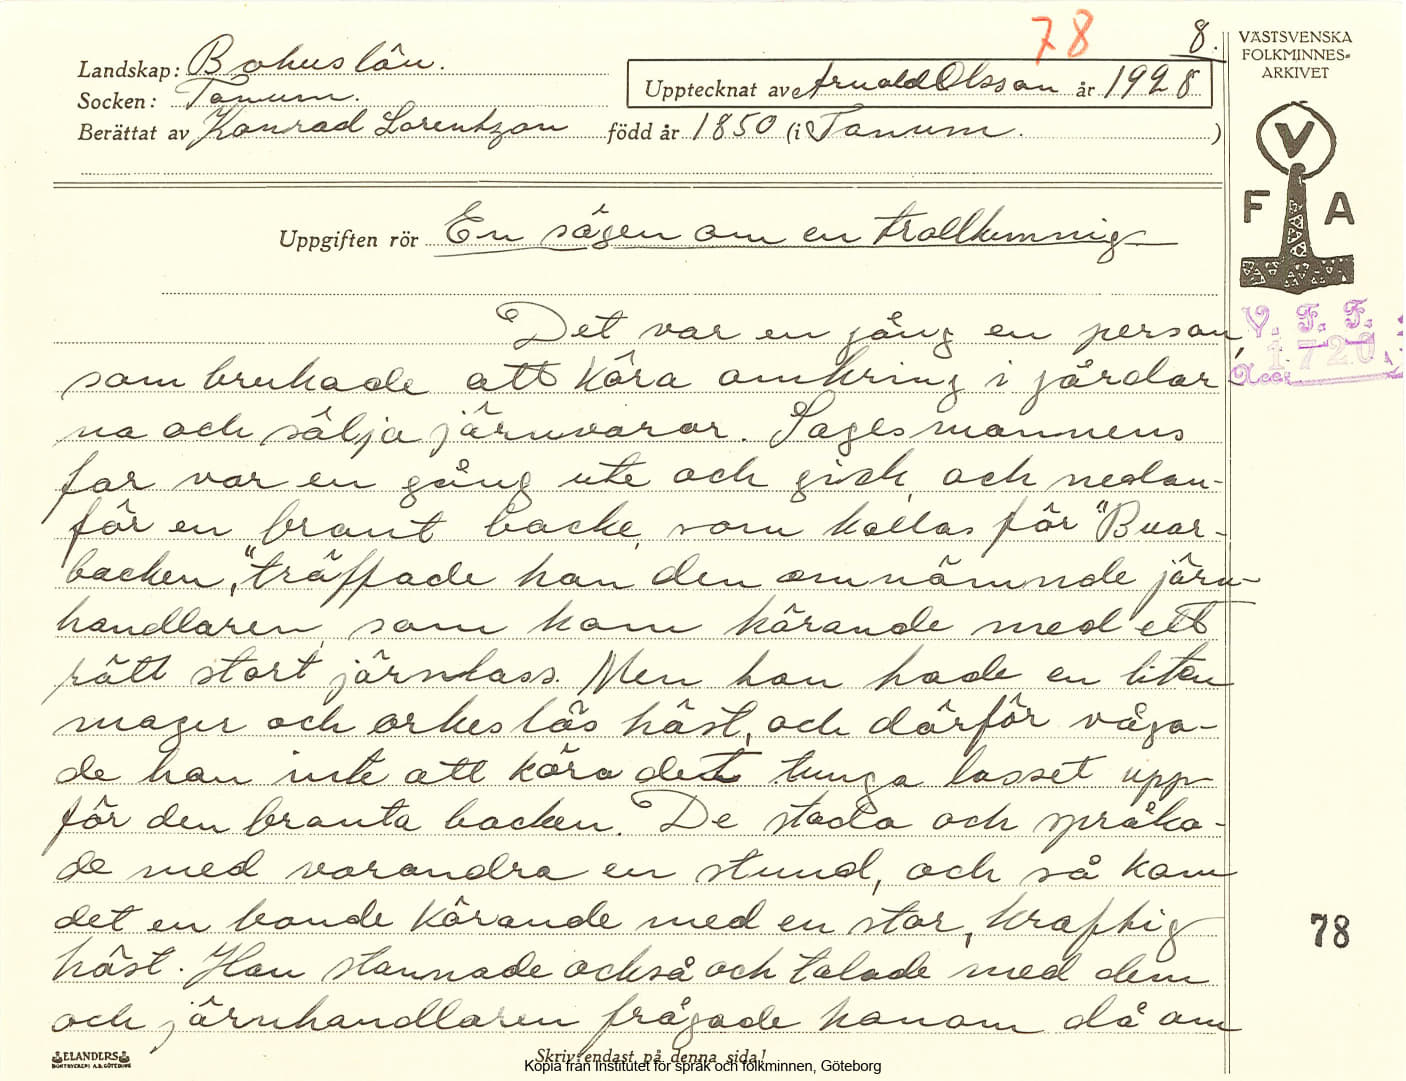 78
8.
Landskap: Bohuslän.
Socken: Tanum.
Upptecknat av Arnold Olsson år 1928
Berättat av Konrad Lorentzon född år 1850 (i Tanum. )
VÄSTSVENSKA
FOLKMINNES-
ARKIVET
V
F A
Uppgiften rör En sägen om en trollkunnig
V. F. F.
1720
Acc:
Det var en gång en person,
som brukade att köra omkring i gårdar-
na och sälja järnvaror. Sagesmannens
far var en gång ute och gick, och nedan-
för en brant backe, som kallas för "Buar-
backen," träffade han den omnämnde järn-
handlaren, som kom körande med ett
rätt stort järnlass. Men han hade en liten
mager och orkeslös häst, och därför våga-
de han inte att köra det tunga lasset upp
för den branta backen. De stodo och språka-
de med varandra en stund, och så kom
det en bonde körande med en stor, kraftig
häst. Han stannade också och talade med dem
och järnhandlaren frågade honom då om
78
ELANDERS
BOKTRYCKERI A.B. GÖTEBORG
Skriv endast på denna sida!
Kopia från Institutet för språk och folkminnen, Göteborg